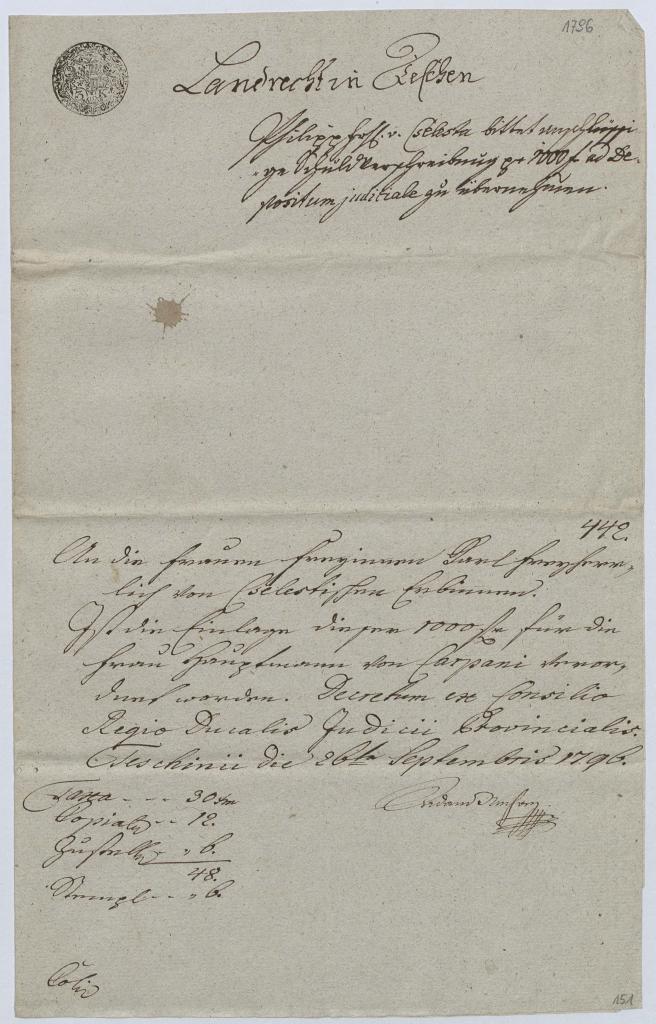 1796
3 K
Landrecht in Teschen
Philipp Frh. v. Cselesta bittet anschlüssi-
ge Schuldverschreibung pr 1000 f. ad De-
positum judiciale zu übernehmen.
442.
An die Frauen Freyinnen Karl Freyherr-
lich von Cselestischen Erbinnen.
Ist die Einlage dieser 1000 f. für die
Frau Hauptmann von Carpani
worden. Decretum ex Consilio
Regio Ducalis Judicii Provincialis.
Teschinii die 26ta Septembris 1796.
Taxa - - - 30
Copial - - 12.
Zustell - " 6.
48.
Stempl - - " 6.
151